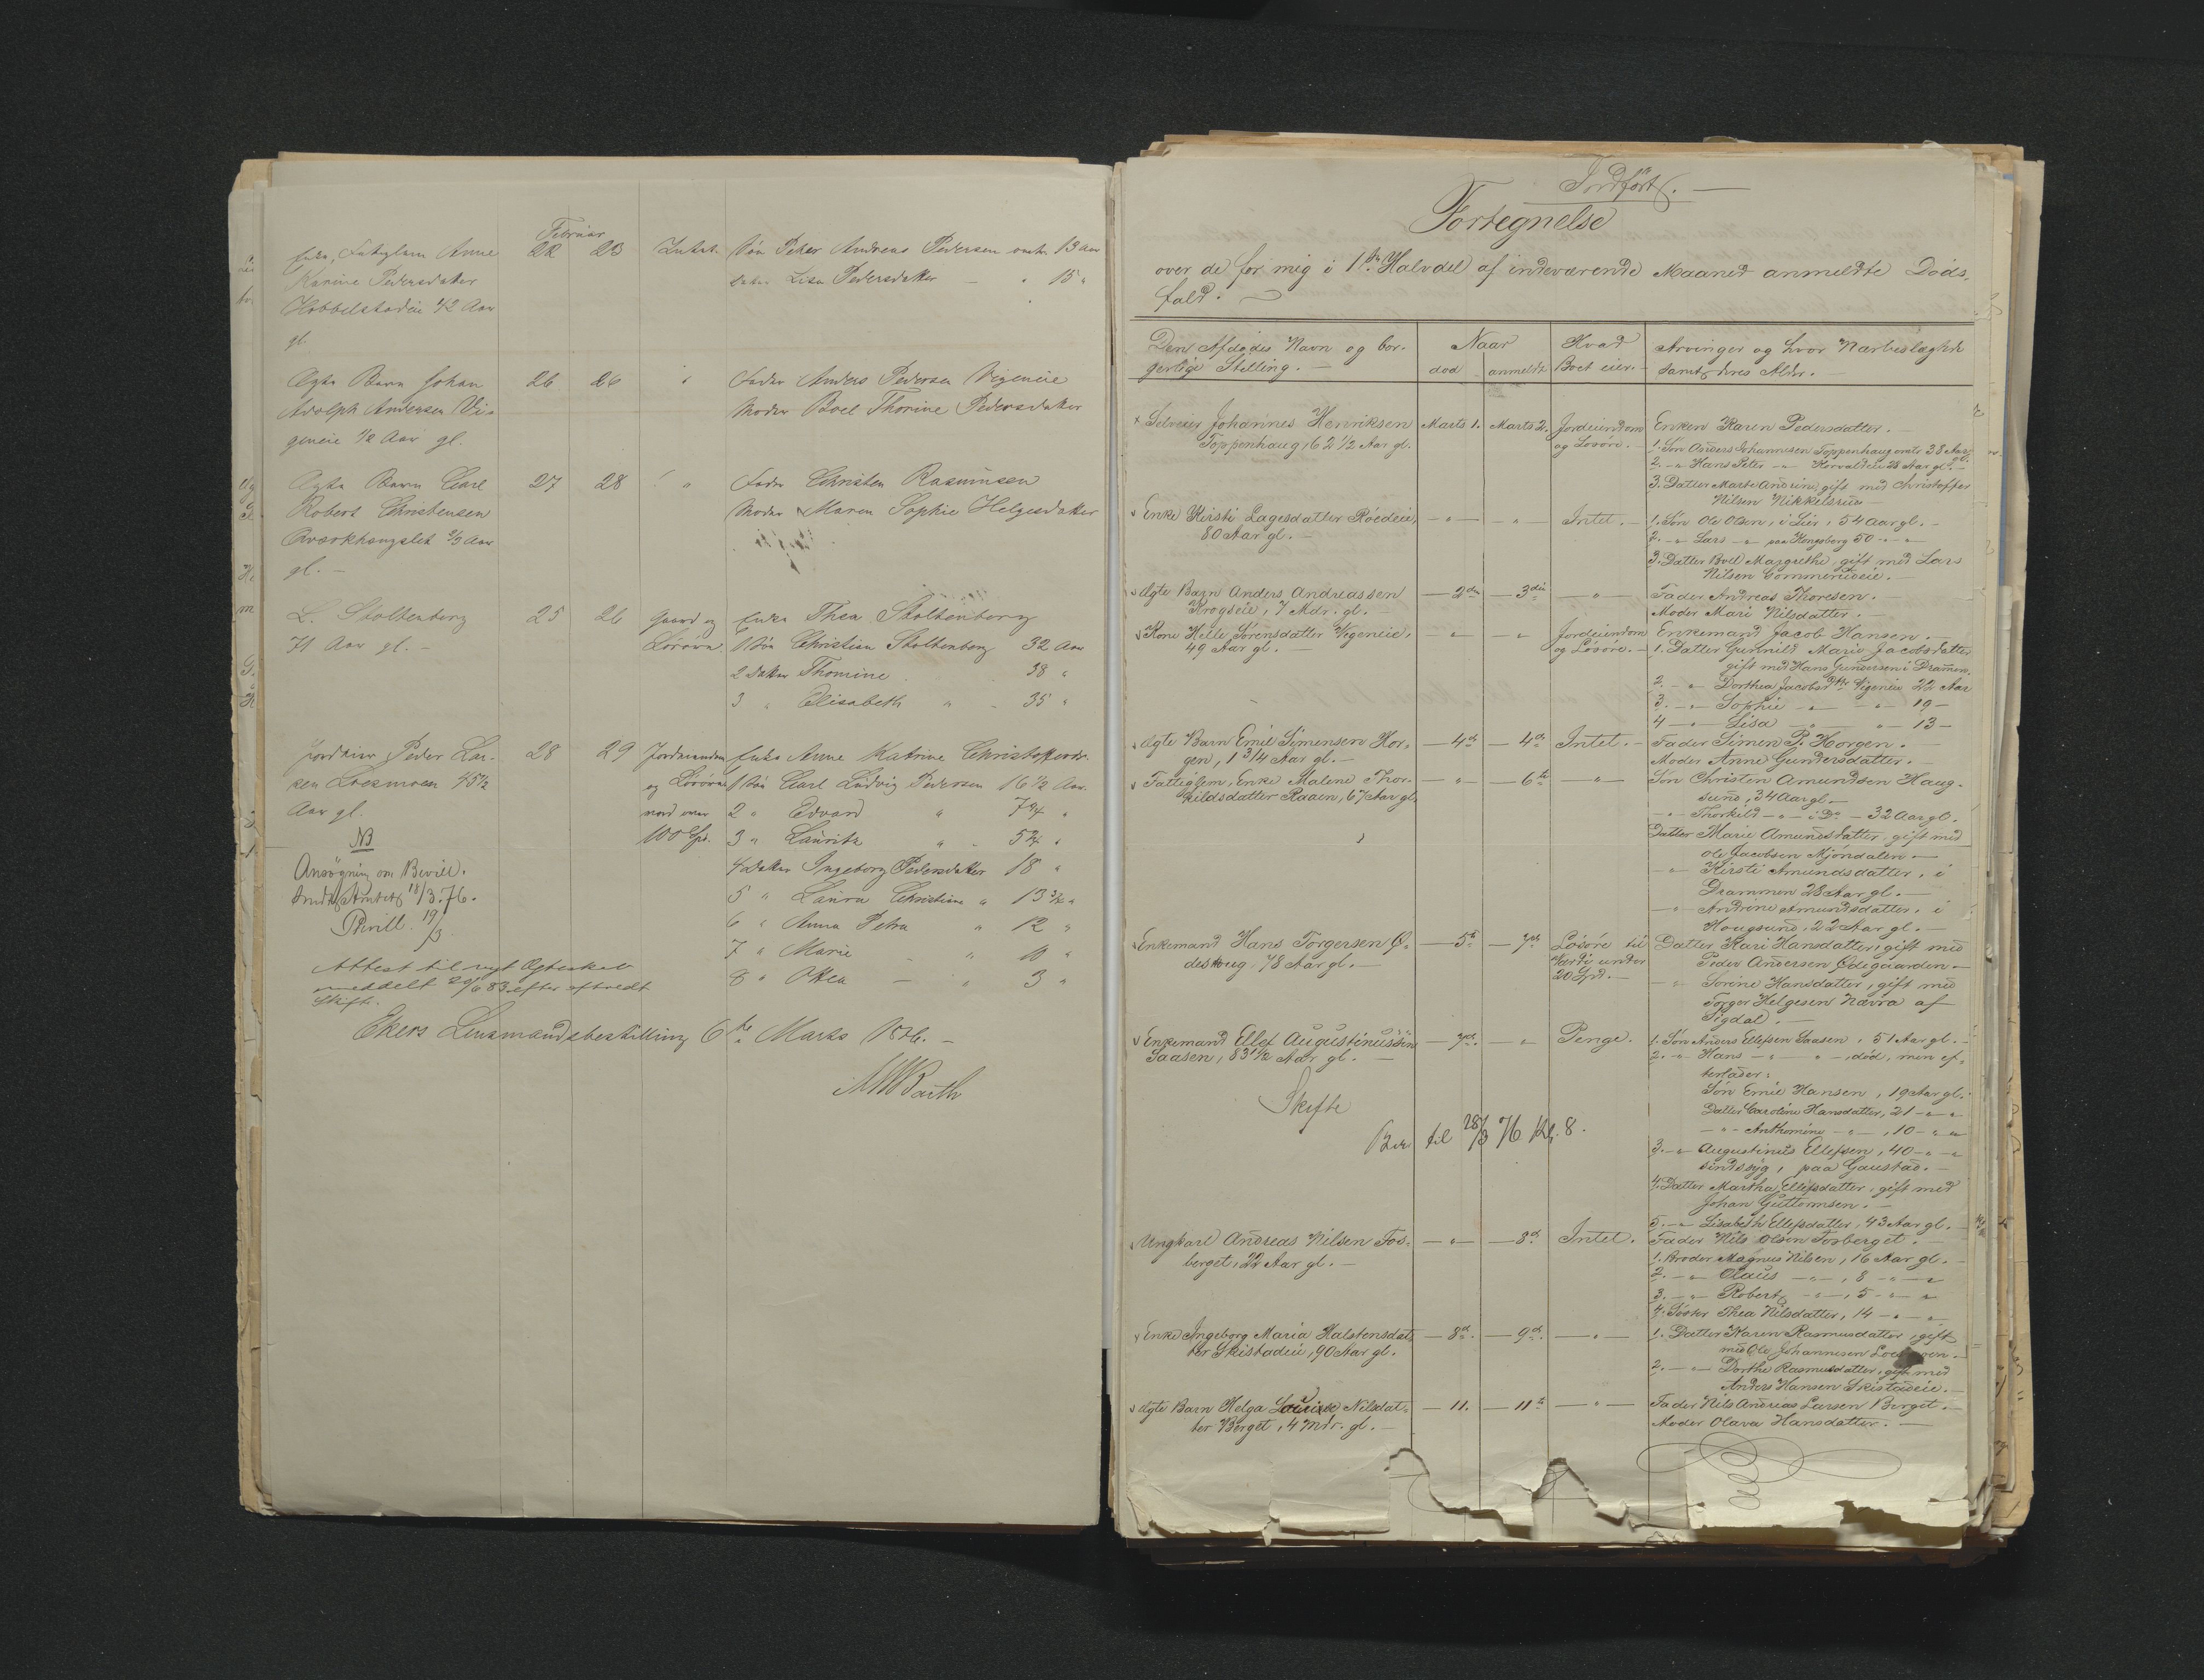 Februar
Enke, Fattiglem Anne 22 23 Intet. Søn Peter Andreas Pedersen omtr 13 Aar
Karine Pedersdatter Datter Lisa Pedersdatter — " 15 "
Hobbelstadeie 42 Aar
gl.
Ægte Barn Johan 26 26 " Fader Anders Pedersen Vegeneie
Adolph Andersen Ve-
geneie 1/2 Aar gl. Moder Boel Thorine Pedersdatter
Ægte Barn Carl 27 28 " Fader Christen Rasmusen
Robert Christensen Moder Maren Sophie Helgesdatter
2/3 Aar
gl. —
L. Stoltenberg 25 26 Gaard og Enke Thea Stoltenberg
71 Aar gl. — Løsøre. 1 Søn Christian Stoltenberg 32 Aar
2 Datter Thomine 38 "
3 " Elisabeth " - 35 "
Jordeier Peder Lar- 28 29 Jordeiendom Enke Anne Katrine Christoffersdr.
sen Loesmoen 45 1/2 og Løsøre 1 Søn Carl Ludvig Pedersen 16 1/2 Aar.
Aar gl. værd over 2 " Edvard " 7 3/4 "
NB 100 Spd. 3 " Lauritz " - 5 3/4 "
4 Datter Ingeborg Pedersdatter 18 "
Ansøgning om Bevill. 5 " Laura Christine " 13 3/4 "
18/3.76. 6 " Anna Petra " 12 "
Bevill. 19/3. 7 " Marie - " 10 "
Attest til nyt Ægteskab 8 " Othea - " 3 "
meddelt 20/6 83 efter afholdt
Skifte.
Ekers Lensmandsbestilling 6te Marts 1876. —
Indført. —
Fortegnelse
over de for mig i 1ste Halvdel af indeværende Maaned anmeldte Døds-
fald. —
Den Afdødes Navn og bor- Naar Hvad Arvinger og hvor Nærbeslægtede
gerlige Stilling. — død anmeldt Boet eier. — samt deres Alder. —
x Selveier Johannes Henriksen Marts 1. Marts 2. Jordeiendom Enken Karen Pedersdatter. —
Toppenhaug, 62 1/2 Aar gl. og Løsøre. — 1. Søn Anders Johannesen Toppenhaug omtr 38 Aar gl.
2. - " Hans Peter - " Horvaldeie 28 Aar gl. —
3. Datter Marte Andrine, gift med Christoffer
Nilsen Nikkelsrud
v Enke Kirsti Lagesdatter Røedeie, — " — " Intet. — 1. Søn Ole Olsen, i Lier, 54 Aar gl. —
80 Aar gl. — 2. - " Lars - " paa Kongsberg 50 - " - "
3. Datter Boel Margrethe, gift med Lars
Nilsen Commerudeie. —
v Ægte Barn Anders Andreassen — 2den — 3die — " — Fader Andreas Thoresen. —
Krogseie, 7 Mdr. gl. — Moder Mari Nilsdatter. —
v Kone Helle Sørensdatter Vegeneie, — " — " Jordeiendom Enkemand Jacob Hansen. —
49 Aar gl. — og Løsøre. — 1. Datter Gunnild Marie Jacobsdatter
gift med Hans Gundersen i Drammen.
2. - " Dorthea Jacobsdtr Vegeneie 22 Aar
3. - " Sophie - " - " - 19 -
4 - " Lisa - " - " - 13 -
v Ægte Barn Emil Simensen Hor- — 4de — 4de Intet. — Fader Simen P. Horgen. —
gen, 1 3/4 Aar gl. — Moder Anne Gundersdatter. —
v Fattiglem, Enke Malene Thor- — " — 6te — " — Søn Christen Amundsen Haug-
kildsdatter Raaen, 67 Aar gl. sund, 34 Aar gl. —
- " Thorkild - " - i Do - 32 Aar gl. -
Datter Marie Amundsdatter gift med
Ole Jacobsen Mjøndalen —
- " Kirsti Amundsdatter, i
Drammen 28 Aar gl. —
- " Andrine Amundsdatter, i
Hougsund, 22 Aar gl. —
v Enkemand Hans Torgersen Ø- — 5te — 7de Løsøre til Datter Kari Hansdatter, gift med
deshoug, 78 Aar gl. — Værdi under Peder Andersen Ødegaarden —
20 Spd. — - " Sorine Hansdatter, gift med
Torger Helgesen Nævra af
Sigdal. —
v Enkemand Ellef Augustinussen — 7de. — " Penge. 1. Søn Anders Ellefsen Saasen, 51 Aar gl. —
Saasen, 83 1/2 Aar gl. — 2. - " Hans - " - " -, død, men ef-
terlader:
Skifte Søn Emil Hansen, 19 Aar gl.
Datter Caroline Hansdatter, 21 - " - "
Ber. til 28/3 76 Kl. 8. - " - Anthomine - " -, 10 - " - "
3. - " Augustinus Ellefsen, 40 - " - "
sindssyg, paa Gaustad. —
4. Datter Martha Ellefsdatter, gift med
Johan Guttormsen. —
5. - " Lisabeth Ellefsdatter, 43 Aar gl. —
v Ungkarl Andreas Nilsen Fos- — " — 8de Intet. Fader Nils Olsen Fosberget. —
berget, 22 Aar gl. — 1. Broder Magnus Nilsen, 16 Aar gl. —
2. - " Olaus - " -, 8 - " - "
3. - " Robert - " -, 5 - " - "
4. Søster Thea Nilsdatter, 14 - " - "
v Enke Ingeborg Maria Halstensdat- — 8de. — 9de. — " — 1. Datter Karen Rasmusdatter, gift
ter Skistadeie, 90 Aar gl. med Ole Johannesen
2. - " Dorthe Rasmusdatter, gift med
Anders Hansen Skistadeie. —
v Ægte Barn Helga Louise Nilsdat- — 11. — 11te — " — Fader Nils Andreas Larsen Berget. —
ter Berget, 4 Mdr. gl. — Moder Olava Hansdatter. —